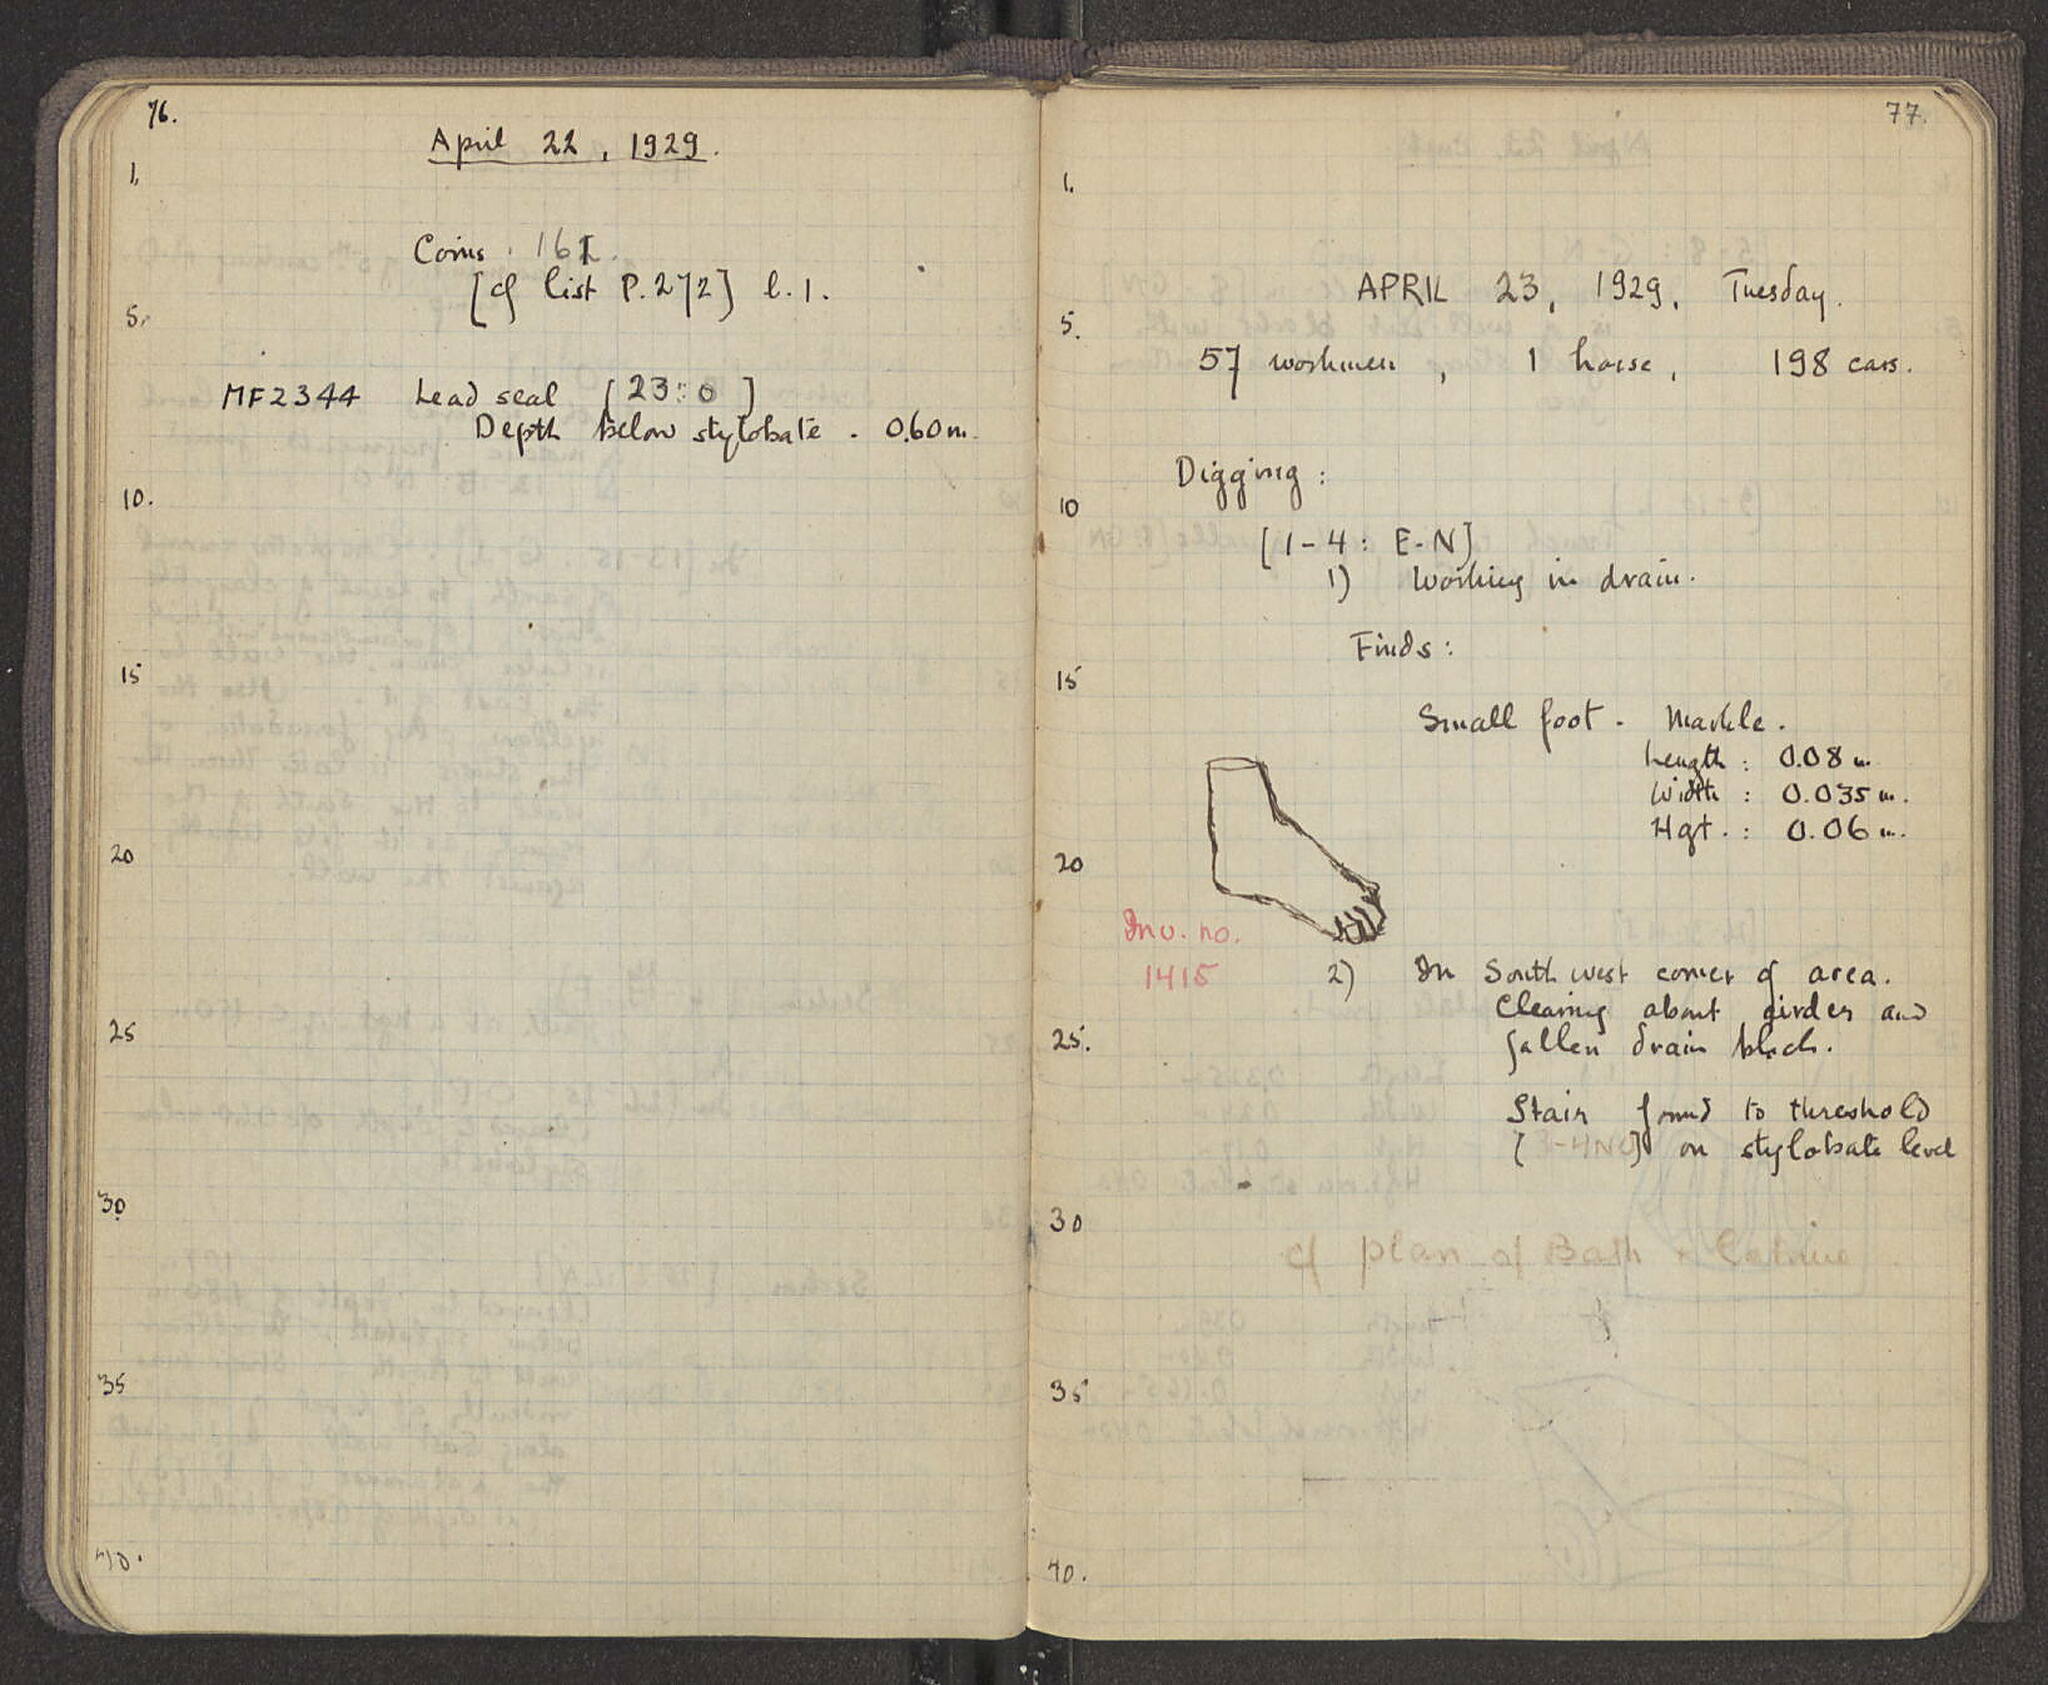 76.
April 22, 1929.
1.
Coins. 162.
[cf list P. 272] l. 1.
5.
MF2344 Lead seal [23:0]
Depth below stylobate. 0.60 m.
10.
15
20
25
30
35
40.
77.
1.
APRIL 23, 1929, Tuesday.
5.
57 workmen, 1 horse, 198 cars.
Digging:
10
[1-4: E-N]
1) Working in drain.
Finds:
15
Small foot. Marble.
Length: 0.08 m.
Width: 0.035 m.
Hgt.: 0.06 m.
20
Inv. no.
1415
2) In South west corner of area.
Clearing about girder and
25.
fallen drain block.
Stair found to threshold
on stylobate level
30
cf plan of Bath + Latrine
35
40.